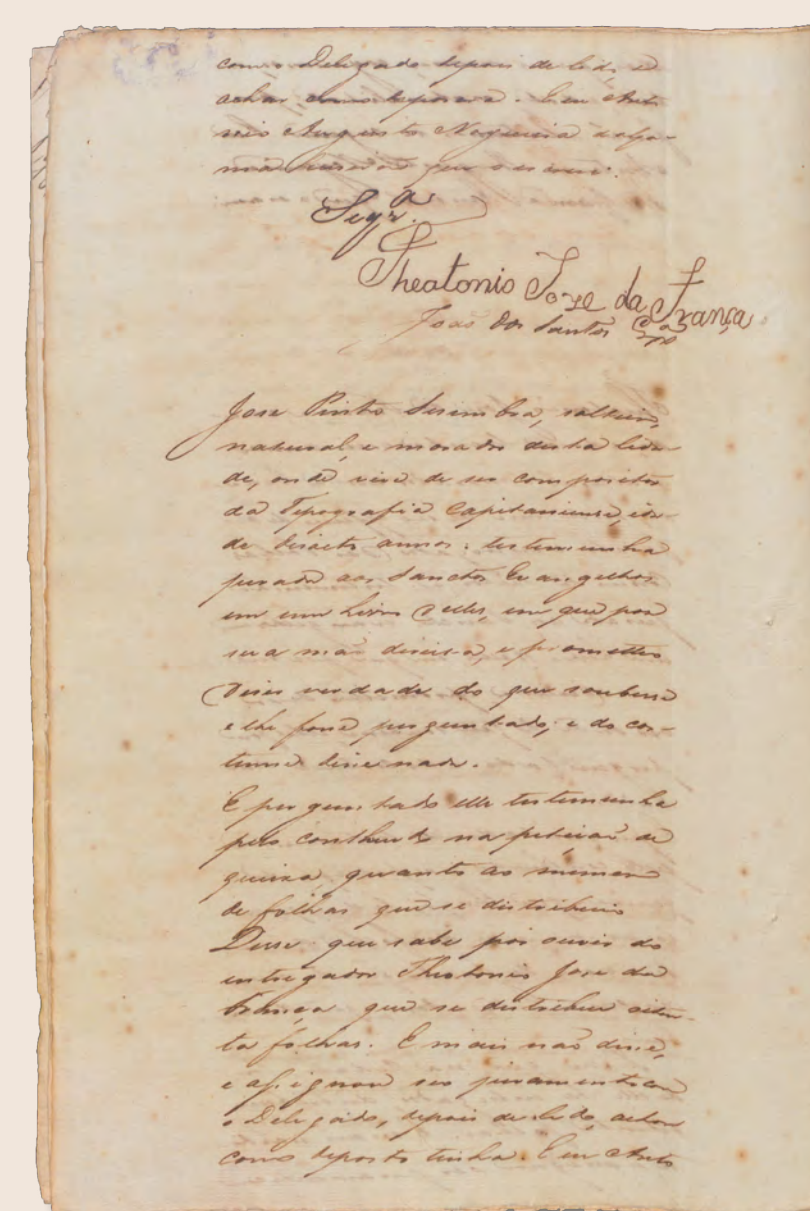 com o Delegado depois de lido e
achar como depusera. Eu Anto
nio Augusto Nogueira da Ga-
ma escrivão que o escrevi.
Segr.ª
Theatonio Joze da França
João dos Santos
Jose Pinto Serimbra, solteiro,
natural, e morador desta Cida
de, onde vive de ser compositor
da Typografia Capitaniense, ida-
de desoito annos: testemunha
jurada aos Sanctos Evangelhos
em um Livro delles, em que poz
sua mão direita, e prometteu
diser verdade do que soubesse
e lhe fosse perguntado; e do cos-
tume disse nada.
E perguntado elle testemunha
pelo contheudo na petição de
queixa, quanto ao numero
de folhas que se distribuio
Disse que sabe por ouvir do
entregador Theotonio Jose da
França que se distribuio oiten-
ta folhas. E mais não disse,
e assignou seu juramento com
o Delegado, depois de lido, achar
como deposto tinha. Eu Anto